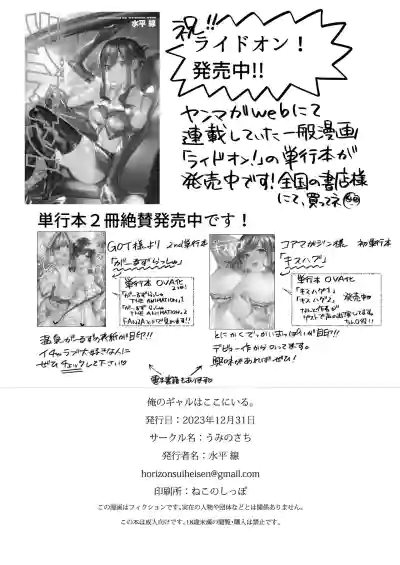 水平 線
祝!!
ライドオン!
発売中!!
ヤンマガwebにて
連載していた一般漫画
「ライドオン!」の単行本が
発売中です!全国の書店様
にて、買ってネ
単行本2冊絶賛発売中です!
GOT様より 2nd単行本
「がーるずらっしゅ」
単行本 OVA化
「がーるずらっしゅ
THE ANIMATION」1
「がーるずらっしゅ
THE ANIMATION」2
温泉がーるずの表紙が目印!!
イチャラブ大好きな人に
ぜひチェックして下さい
コアマガジン様 初単行本
「キスハグ」
キスハグ
単行本 OVA化
「キスハグ1」
「キスハグ2」 発売中
とにかくでっかいおっぱいが目印!!
デビュー作からのってますの
興味があればぜひ!
電子書籍もあります
俺のギャルはここにいる。
発行日:2023年12月31日
サークル名:うみのさち
発行者名:水平 線
horizonsuiheisen@gmail.com
印刷所:ねこのしっぽ
この漫画はフィクションです。実在の人物や団体などとは関係ありません。
この本は成人向けです。18歳未満の閲覧・購入は禁止です。